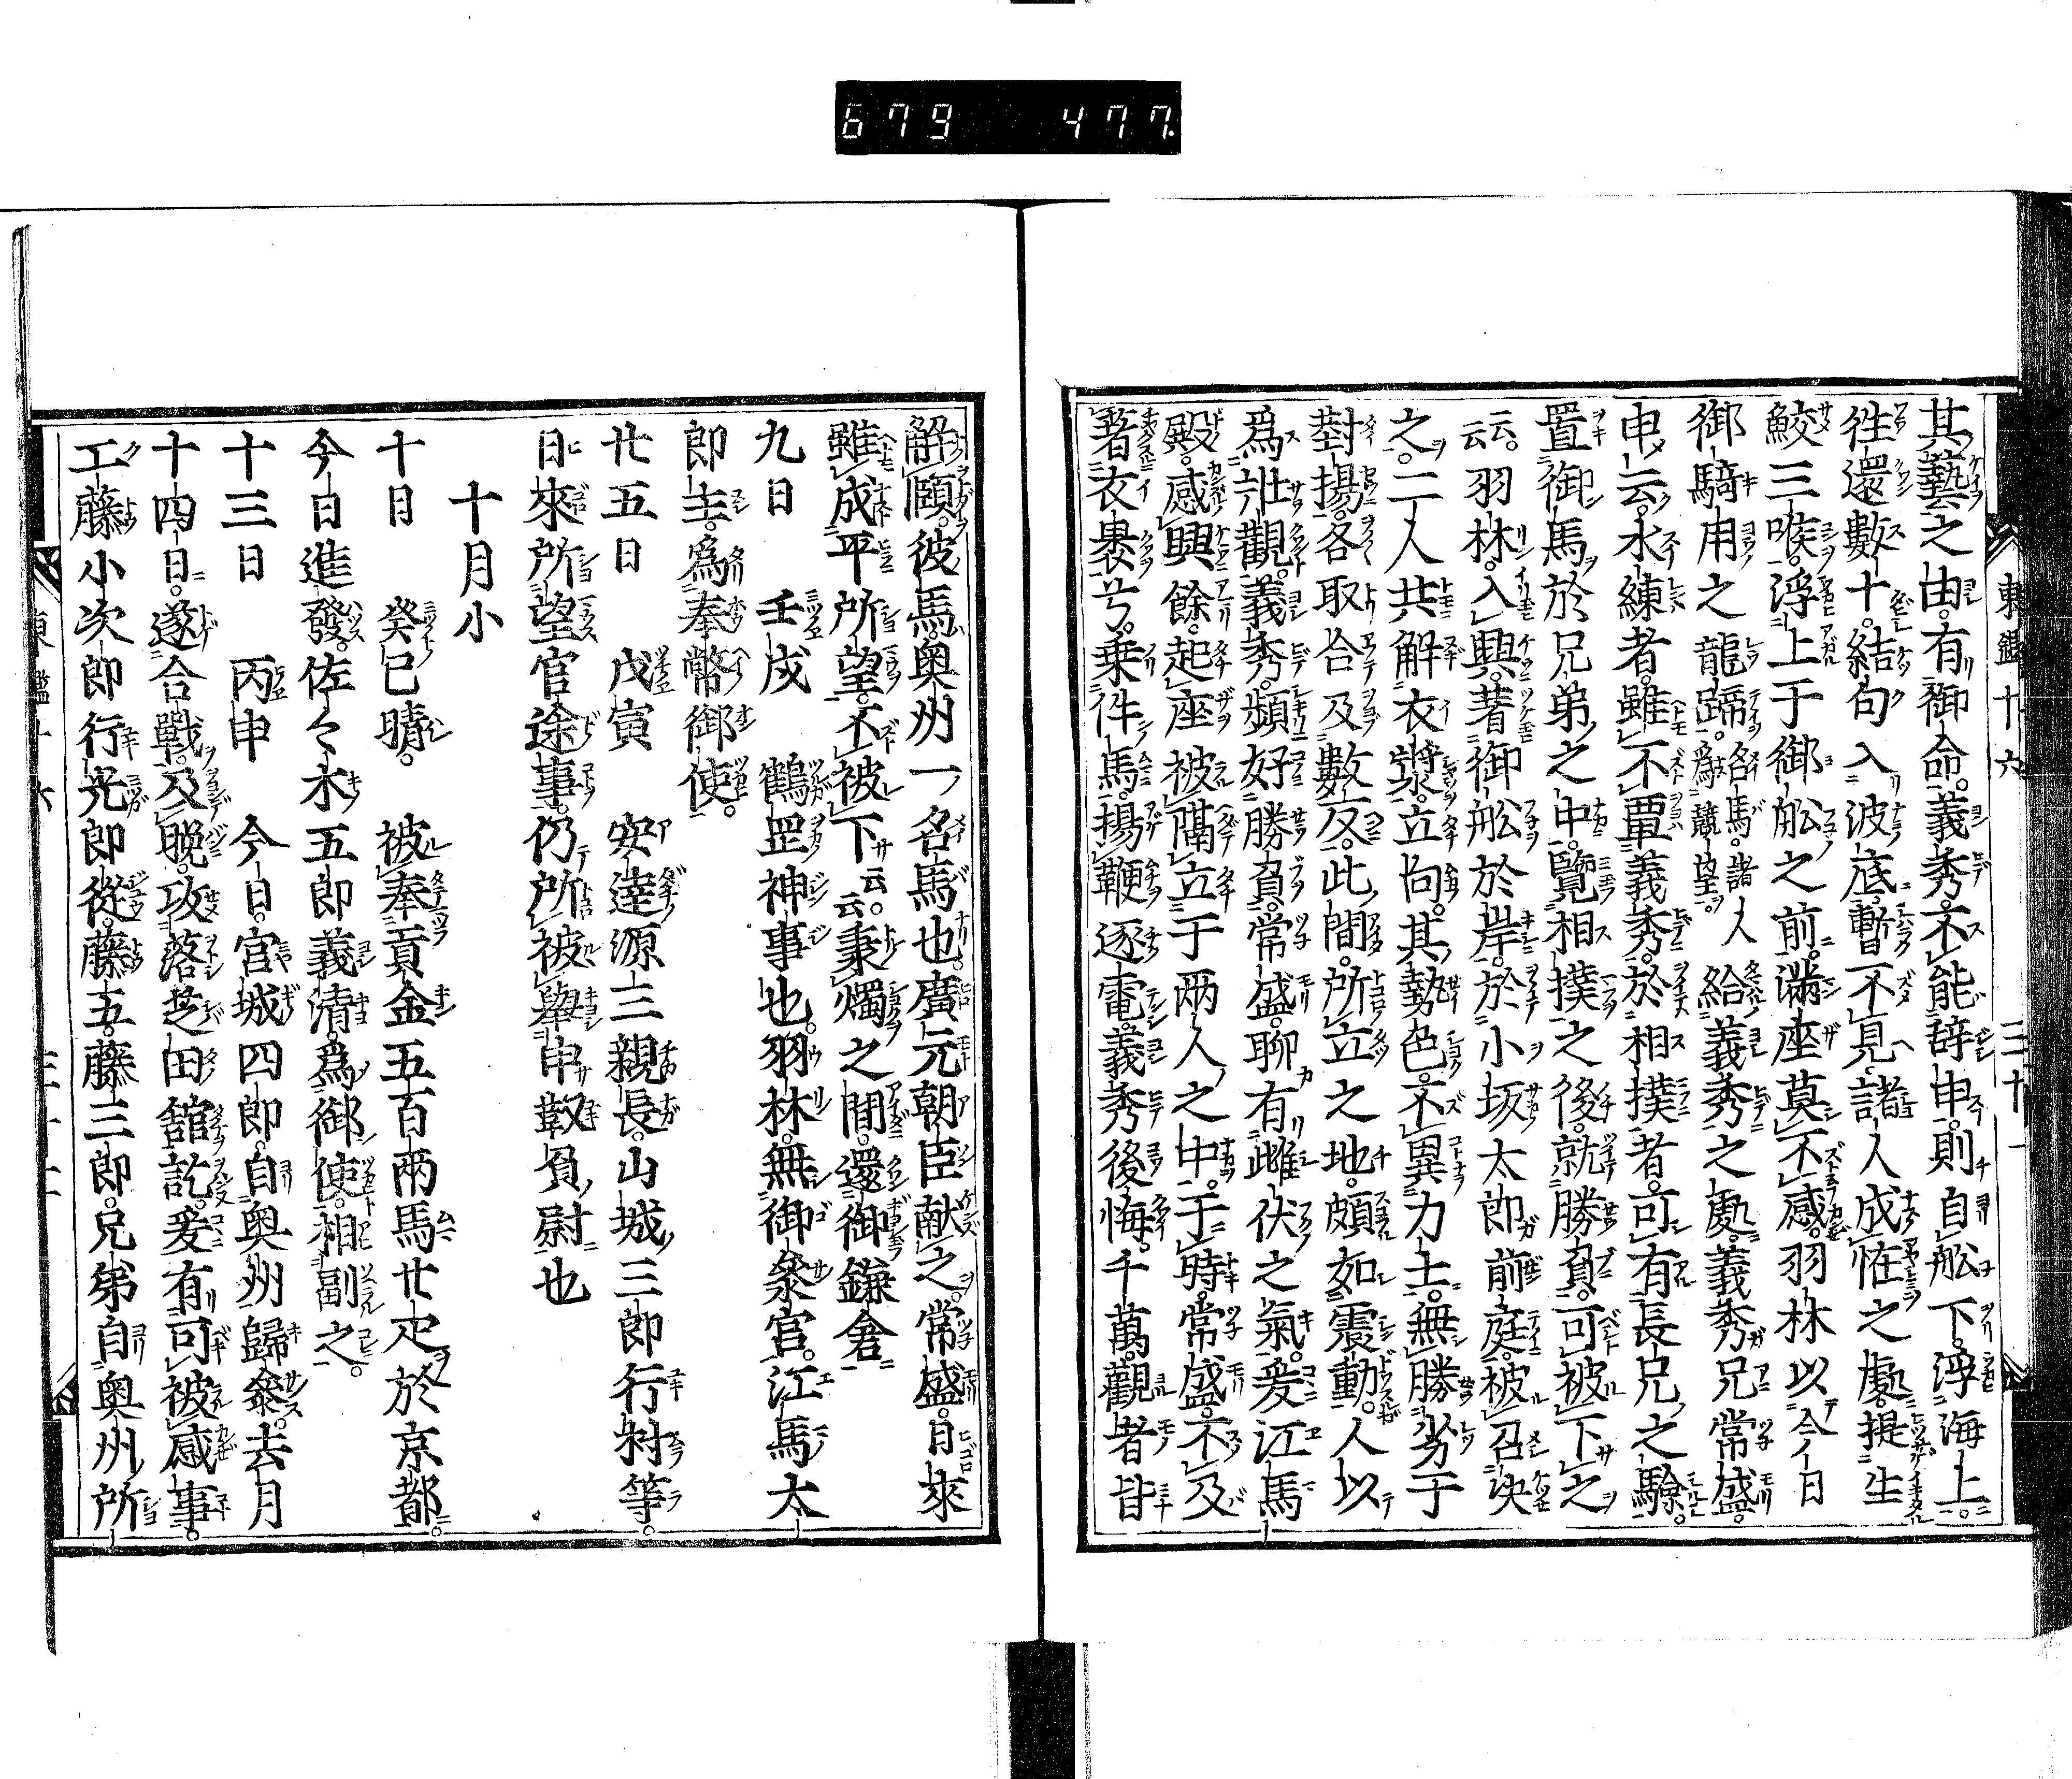 679 477
東鑑十六 三十一
其藝之由。有御命。義秀。不能辞申。則自舩下。浮海上。
徃還數十。結句入波底。暫不見。諸人成恠之處。提生
鮫三喉。浮上于御舩之前。滿座莫不感。羽林以今日
御騎用之龍蹄。名馬。諸人爲競望。給義秀之處。義秀兄常盛。
申云。水練者。雖不覃義秀。於相撲者。可有長兄之驗。
置御馬於兄弟之中。覽相撲之後。就勝負。可被下之
云云。羽林。入興。著御舩於岸。於小坂太郎前庭。被召决
之。二人共解衣裳。立向。其勢色。不異力士。無勝劣于
對揚。各取合及數反。此間。所立之地。頗如震動。人以
爲壯觀。義秀。頻好勝負。常盛。聊有雌伏之氣。爰江馬
殿。感興餘。起座被隔立于兩人之中。于時。常盛。不及
著衣裹。乗件馬。揚鞭逐電。義秀後悔。千萬。觀者皆
解頤。彼馬。奥州一名馬也。廣元朝臣献之。常盛。日來
雖成平所望。不被下云云。秉燭之間。還御鎌倉
九日 壬戌 鶴罡神事也。羽林。無御参宮。江馬太
郎主。爲奉幣御使。
廿五日 戊寅 安達源三親長。山城三郎行村等。
日來所望官途事。仍所被擧申靱負尉也
十月小
十日 癸巳晴。 被奉貢金五百兩馬廿疋於京都。
今日進發。佐々木五郎義清。爲御使。相副之。
十三日 丙申 今日。宮城四郎。自奥州歸参。去月
十四日。遂合戰。及晚。攻落芝田舘訖。爰有可被感事。
工藤小次郎行光郎從。藤五。藤三郎。兄弟自奥州所
東鑑十六 三十二